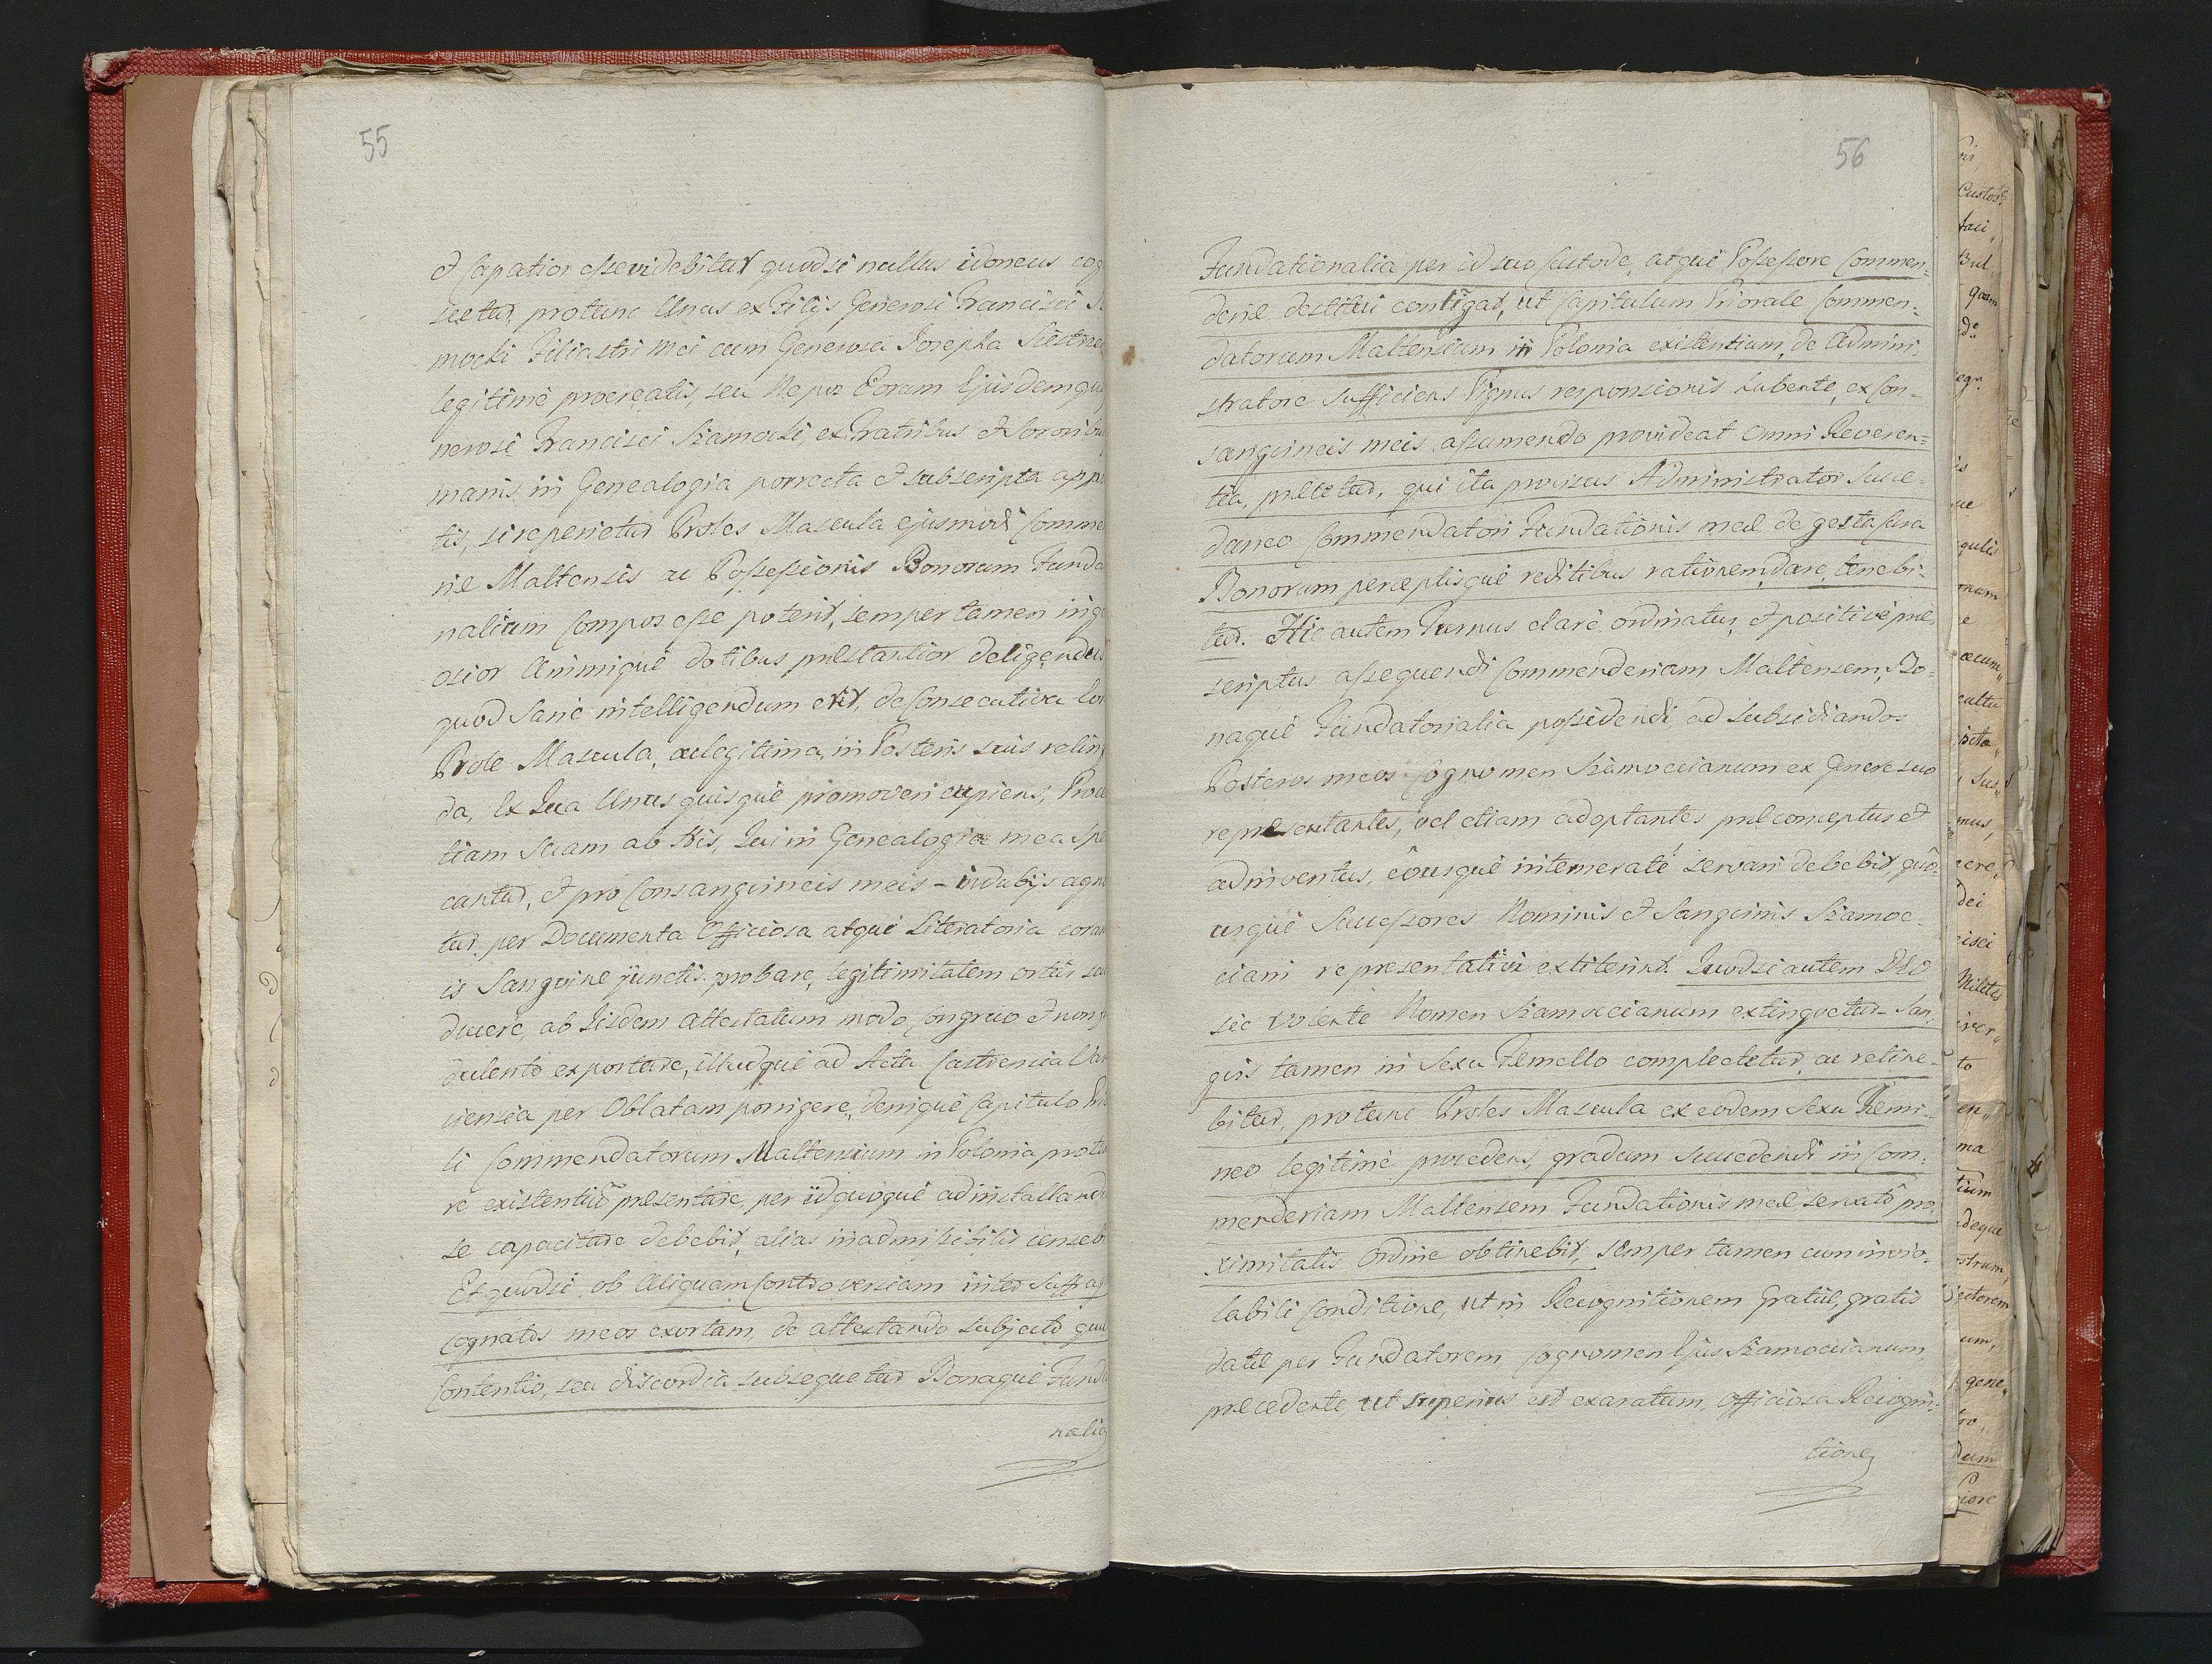 55
et Capatior esse videbitur quodsi nullus idoneus cog
scetur, protunc Unus ex Filijs Generosi Francisci S
mocki Filiastri Mei cum Generosa Josepha
legitimè procreatis, seu Nepos Eorum Ejusdemque
nerosi Francisci Szamocki, ex Fratribus et Sororibus
manis, in Genealogia porrecta et subscripta app
tis, si reperietur Proles Mascula ejusmodi Comme
riæ Maltensis ac Possessionis Bonorum Funda
nalium Compos esse poterit, semper tamen inge
osior Animiquè dotibus præstantior deligendus
quod Sanè intelligendum erit, de Consecutiva
Prole Mascula, ac legitima, in Posteris suis relin
da, Ex Qua Unus quisquè promoveri cupiens, Prod
tiam Suam ab His, Qui in Genealogia mea spe
cantur, et pro Consanguineis meis indubijs agno
tur per Documenta Officiosa atquè Literatoria coram
is Sanguine junctis probare, legitimitatem ortus
ducere, ab Iisdem Attestatum modo congruo et non
dulento exportare, illudquè ad Acta Castrensia Var
siensia per Oblatam porrigere, deniquè Capitulo Pri
li Commendatorum Maltensium in Polonia
re existentiu præsentare, per idquoquè ad installand
se capacitare debebit, alias inadmissibilis censebi
Et quodsi ob Aliquam Controversiam inter
Cognatos meos exortam, de attestando subjecto
Contentio, seu discordia subsequetur Bonaquè Funda
nalia
56
Fundationalia per id suo Custode, atquè Possessore Commen=
deriæ destitui contigat, ut Capitulum Priorale Commen=
datorum Maltensium in Polonia existentium, de Admini-
stratore Sufficiens Pignus responsionis habente, ex Con-
sangvineis meis assumendo provideat Omni Reveren=
tia, præcetur, qui ita provisus Administrator Succe-
daneo Commendatori Fundationis meæ de gesta Cura
Bonorum perceptisquè reditibus rationem dare tenebi-
tur. Hic autem Turnus clarè ordinatus, et positivè præ-
scriptus assequendi Commenderiam Maltensem, Bo-
naquè Fundatorialia possidendi ad Subsidiandos
Posteros meos Cognomen Szamoccianum ex Genere suo
repræsentantes, vel etiam adoptantes præconceptus et
adinventus, eousquè intemeratè servari debebit, quo-
usquè Successores Nominis et Sanguinis Szamoc-
ciani repræsentativi extiterint. Quodsi autem DEO
sic volente Nomen Szamoccianum extinguetur San-
guis tamen in Sexu Fæmello complectetur, ac retine-
bitur, protunc Proles Mascula ex eodem Sexu Fæmi-
neo legitimè procedens, gradum succedendi in Com-
menderiam Maltensem Fundationis meæ, servato pro-
ximitatis ordine obtinebit, semper tamen cum invio-
labili Conditione, ut in Recognitionem Gratiæ, gratis
datæ per Fundatorem Cognomen Ejus Szamoccianum
præcedente, ut superius est exaratum, Officiosa Recogni-
tione